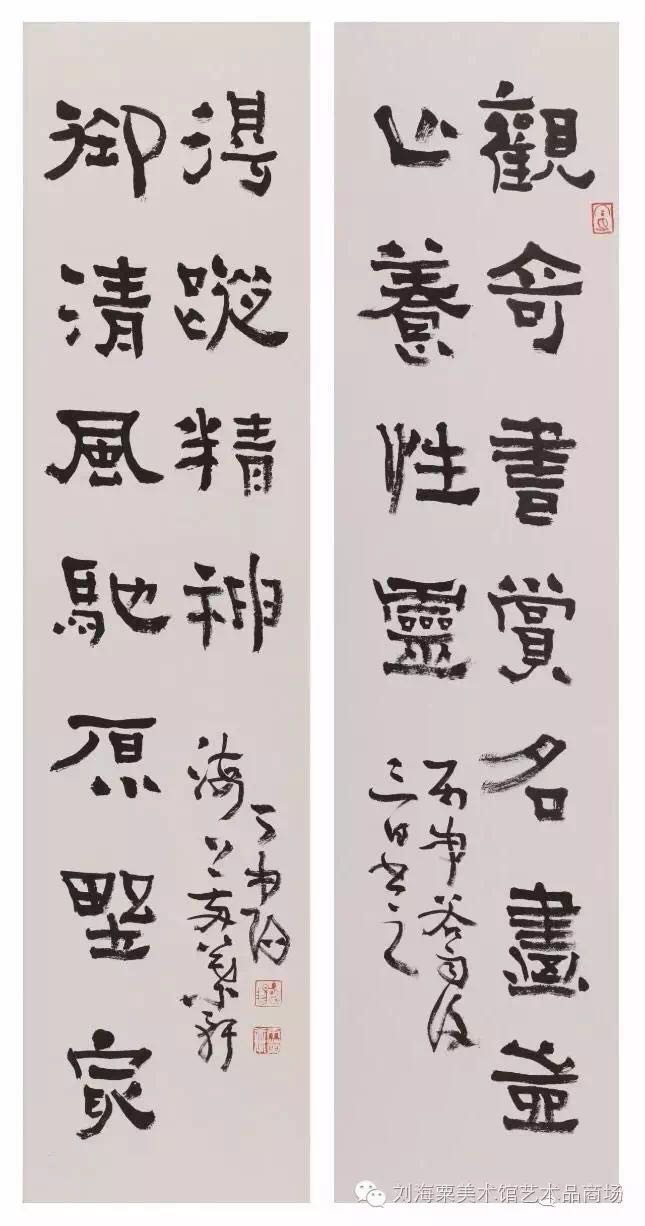 觀奇書賞名畫
養性靈
丙申谷雨後
三日書之
御清風馳原野冣
得蹤精神
丁申陽
海上
刘海粟美术馆艺术品商场